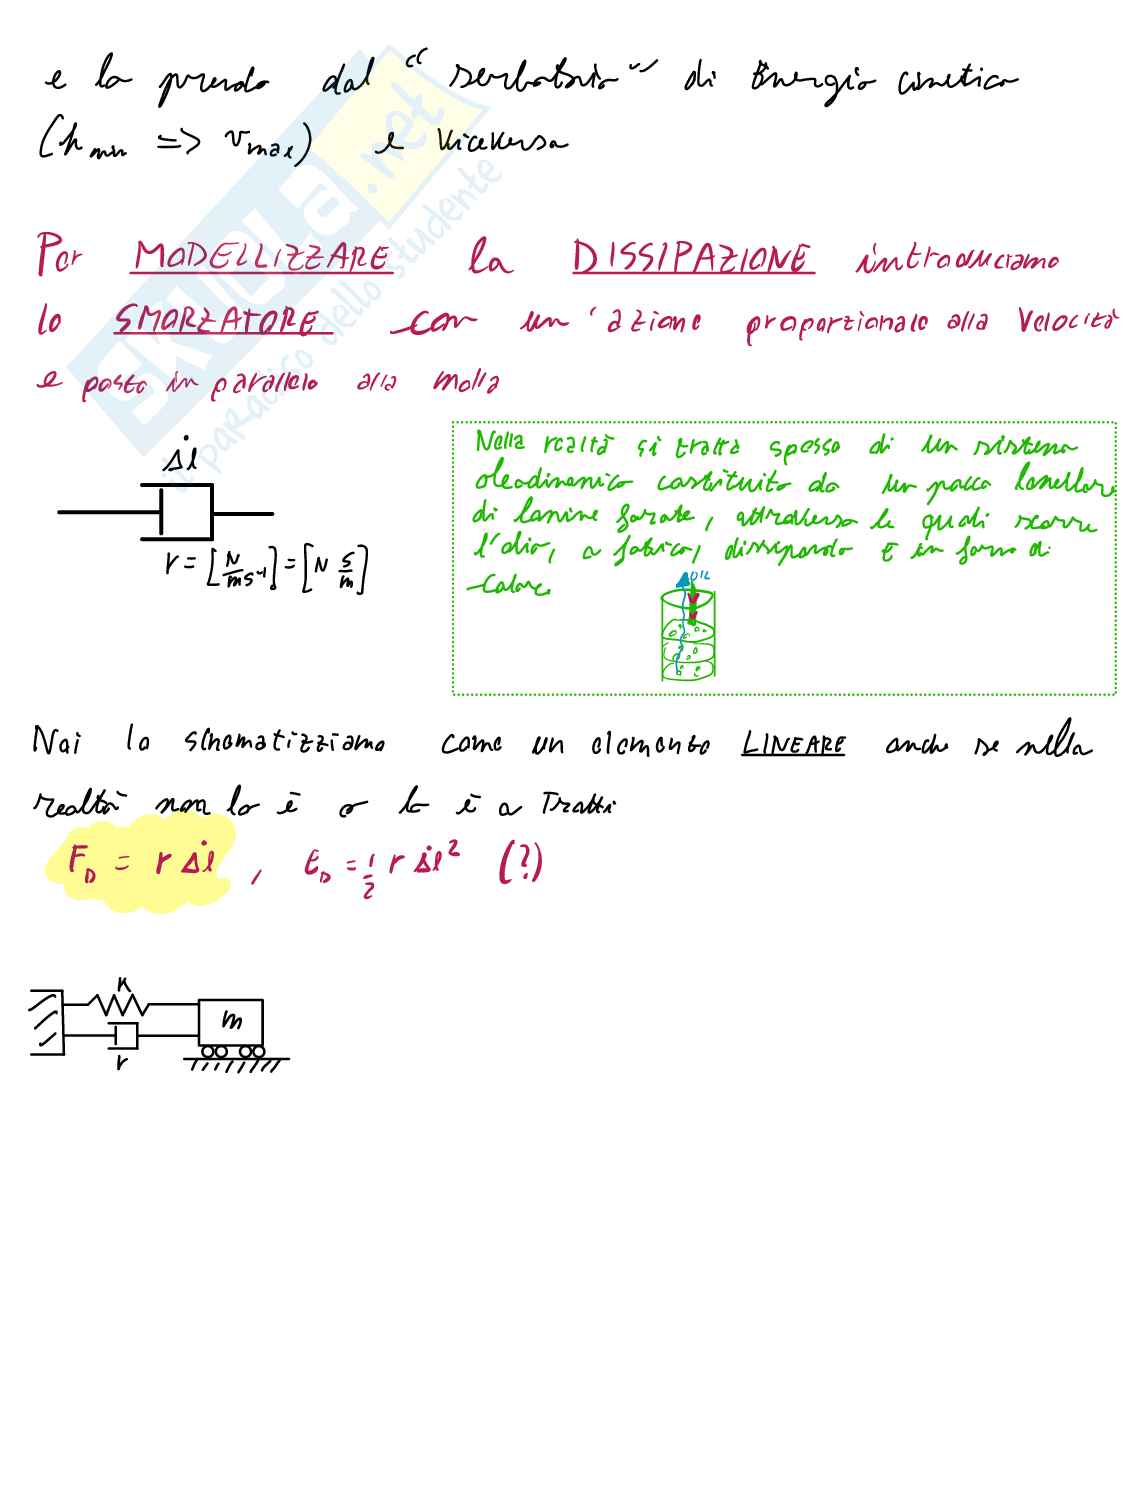 e la prendo dal “serbatoio” di Energia cinetica
(h min => v max) e viceversa
Per MODELLIZZARE la DISSIPAZIONE introduciamo
lo SMORZATORE con un'azione proporzionale alla velocità
e posto in parallelo alla molla
Δl̇
r = [N/ms⁻¹] = [N s/m]
Nella realtà si tratta spesso di un sistema
oleodinamico costituito da un pacco lamellare
di lamine forate, attraverso le quali scorre
l'olio, a fatica, dissipando E in forma di
calore.
OIL
Noi lo schematizziamo come un elemento LINEARE anche se nella
realtà non lo è o lo è a tratti
F_D = r Δl̇ , E_D = 1/2 r Δl̇² (?)
k
m
r
SKUOLA.net
il paradiso dello studente